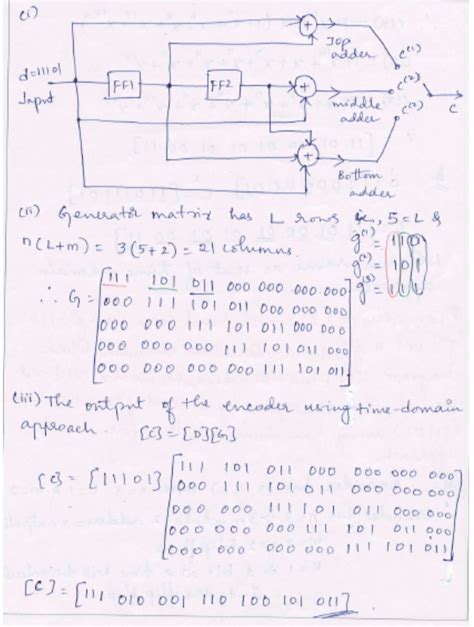 (i)
Top
adder
c(1)
d=11101
Input
FF1
FF2
c(2)
middle
adder
c(3)
c
Bottom
adder
(ii) Generator matrix has L rows ie, 5=L &
n(L+m) = 3(5+2) = 21 columns.
g(1) = 110
g(2) = 101
g(3) = 111
∴ G = [111 101 011 000 000 000 000
000 111 101 011 000 000 000
000 000 111 101 011 000 000
000 000 000 111 101 011 000
000 000 000 000 111 101 011]
(iii) The output of the encoder using time-domain
approach. [C] = [D][G]
[C] = [11101] [111 101 011 000 000 000 000
000 111 101 011 000 000 000
000 000 111 101 011 000 000
000 000 000 111 101 011 000
000 000 000 000 111 101 011]
[C] = [111 010 001 110 100 101 011]